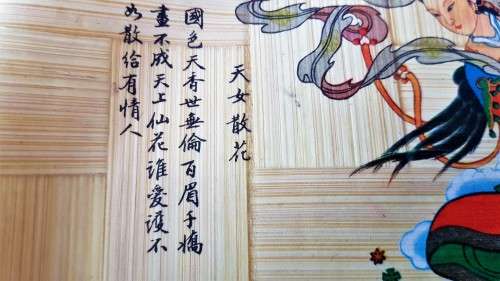 天女散花
國色天香世無倫百眉手嬌
畫不成天上仙花誰愛護不
如散給有情人